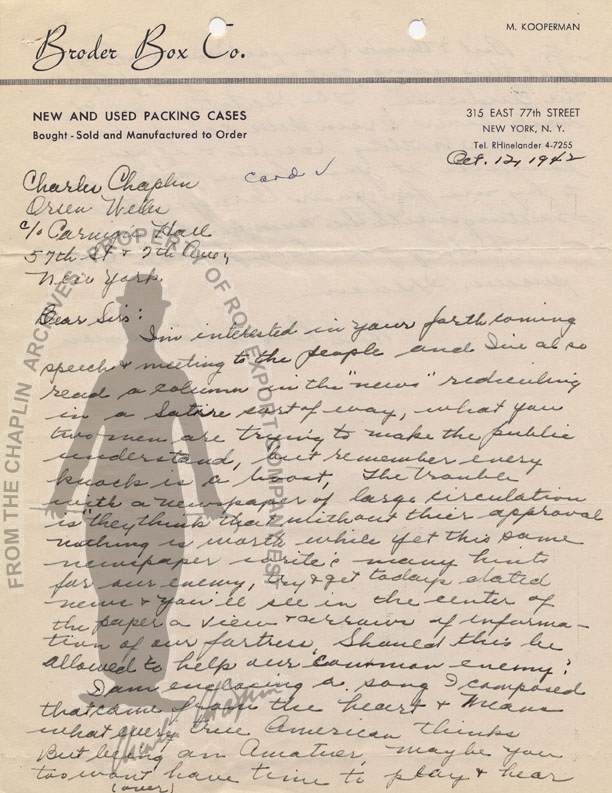 M. KOOPERMAN
Broder Box Co.
NEW AND USED PACKING CASES
Bought - Sold and Manufactured to Order
315 EAST 77th STREET
NEW YORK, N. Y.
Tel. RHinelander 4-7255
Oct. 12, 1942
Charles Chaplin
card ✓
Orsen Welles
c/o Carnegie Hall
57th St & 7th Ave,
New York.
Dear Sirs:
I'm interested in your forthcoming
speech & meeting to the people and I've also
read a column in the "news" rediculing
in a Satire sort of way, what you
two men are trying to make the public
understand, but remember every
knock is a boost, The trouble
with a newspaper of large circulation
is "they think that without their approval
nothing is worth while yet this same
newspaper write's many hints
for our enemy, try & get todays dated
news & you'll see in the center of
the paper a view & arrows of informa-
tion of our fortress. Should this be
allowed to help our common enemy?
I am enclosing a song I composed
that came from the heart & Means
what every true American thinks
But being an Amatuer maybe you
too wont have time to play & hear
(over)
FROM THE CHAPLIN ARCHIVES PROPERTY OF ROY EXPORT COMPANY EST
Charlie Chaplin